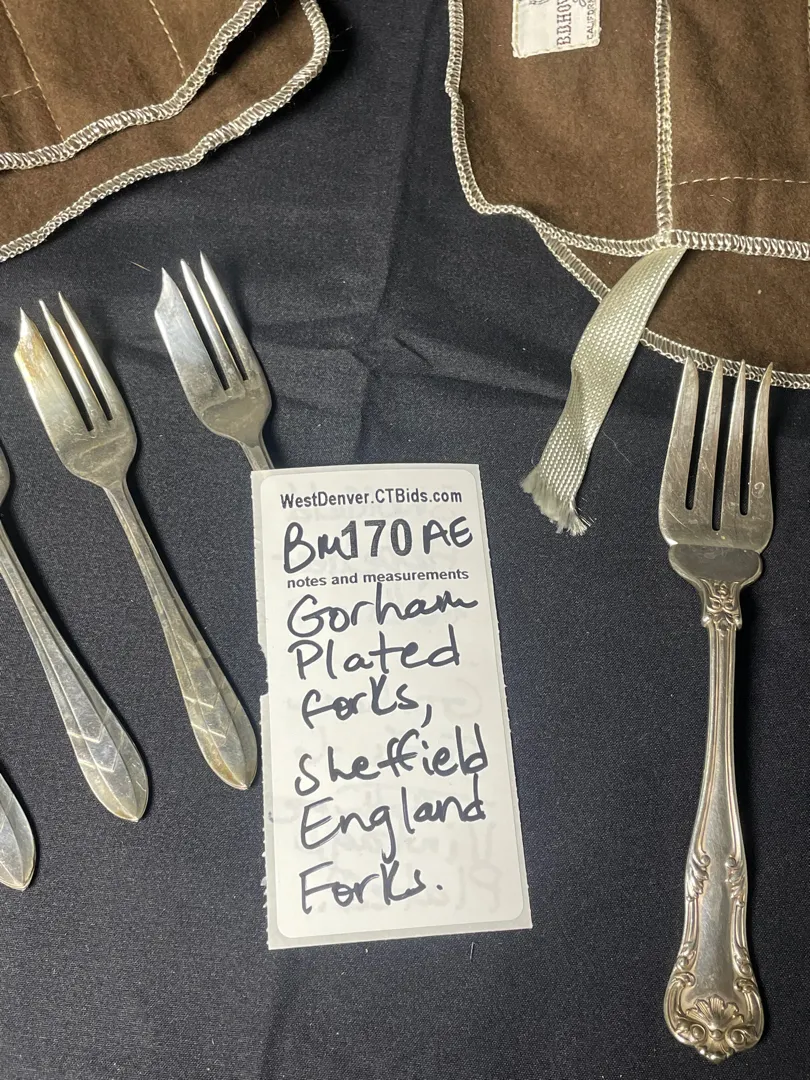 B.B.HO
CALIFOR
WestDenver.CTBids.com
BM170AE
notes and measurements
Gorham
Plated
forks,
Sheffield
England
Forks.